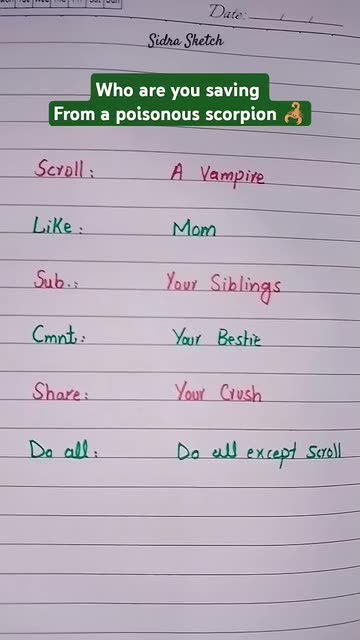 Mon Tue Wed Thu Fri Sat Sun
Date: __/__/__
Sidra Sketch
Who are you saving
From a poisonous scorpion 🦂
Scroll: A Vampire
Like: Mom
Sub.: Your Siblings
Cmnt: Your Bestie
Share: Your Crush
Do all: Do all except scroll